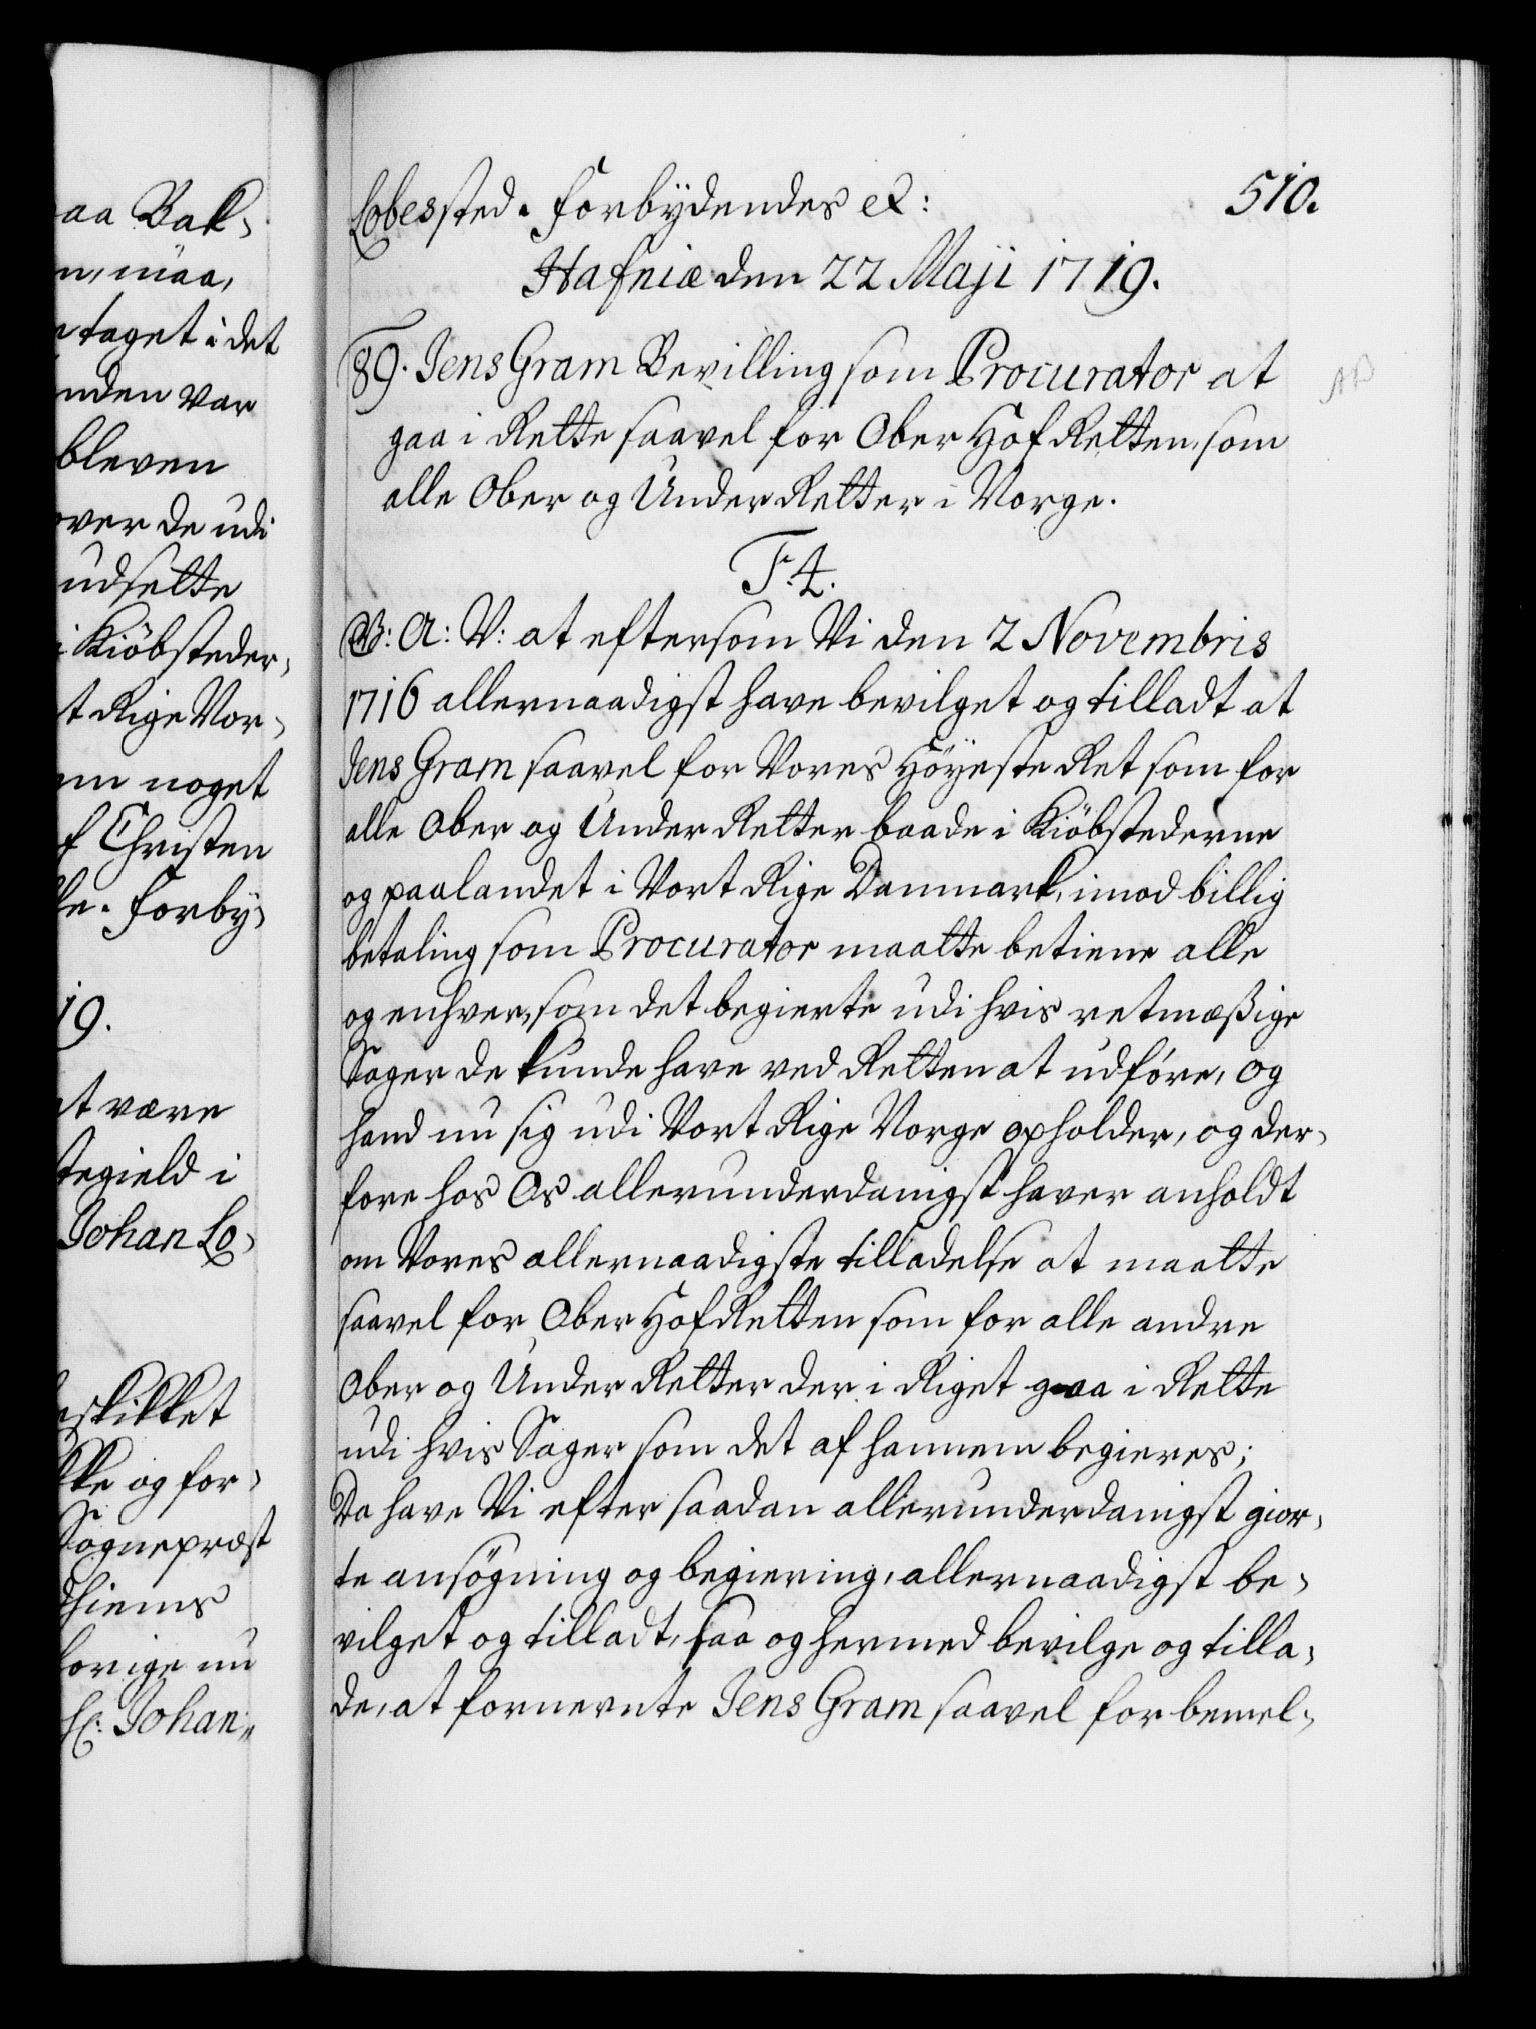 aa Bak-
n, maa,
taget i det
nden var
bleven
over de udi
udsette
i Kiöbsteder,
t Rige Nor-
em noget
f Christen
le. Forby,
19.
at være
tegield i
Johan Lo,
eskikket
kke og for,
Sognepræst
dhiems
forige nu
Hr: Johan,,
Lobessted. Forbydendes etc: 510.
Hafniæ den 22 Maji 1719.
89. Jens Gram Bevilling som Procurator at
gaa i Rette saavel for Ober Hof Retten, som
alle Ober og Under Retter i Norge.
F. 4.
G: A: V: at eftersom Vi den 2 Novembris
1716 allernaadigst have bevilget og tilladt at
Jens Gram saavel for Vores Höyeste Ret som for
alle Ober og Under Retter baade i Kiöbstederne
og paa landet i Vort Rige Danmark, imod billig
betaling som Procurator maatte betiene alle
og enhver, som det begierte udi hvis retmæßige
Sager de kunde have ved Retten at udföre, og
hand nu sig udi Vort Rige Norge opholder, og der,
fore hos Os allerunderdanigst haver anholdt
om Vores allernaadigste tilladelse at maatte
saavel for Ober Hof Retten som for alle andre
Ober og Under Retter der i Riget gaa i Rette
udi hvis Sager som det af hannem begieres;
Da have Vi efter saadan allerunderdanigst gior,
te ansögning og begiering, allernaadigst be,
vilget og tilladt, saa og hermed bevilge og tilla,
de, at fornevnte Jens Gram saavel for bemel,